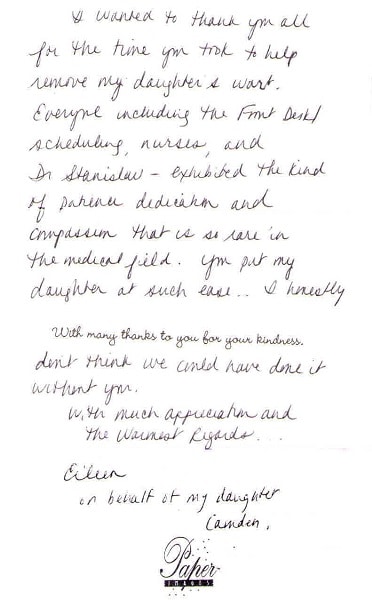 I wanted to thank you all
for the time you took to help
remove my daughter's wart.
Everyone including the Front Desk/
scheduling, nurses, and
Dr Stanislaw - exhibited the kind
of patience dedication and
compassion that is so rare in
the medical field. You put my
daughter at such ease.. I honestly
With many thanks to you for your kindness.
don't think we could have done it
without you.
With much appreciation and
the Warmest Regards...
Eileen
on behalf of my daughter
Camden.
Paper
IMAGES